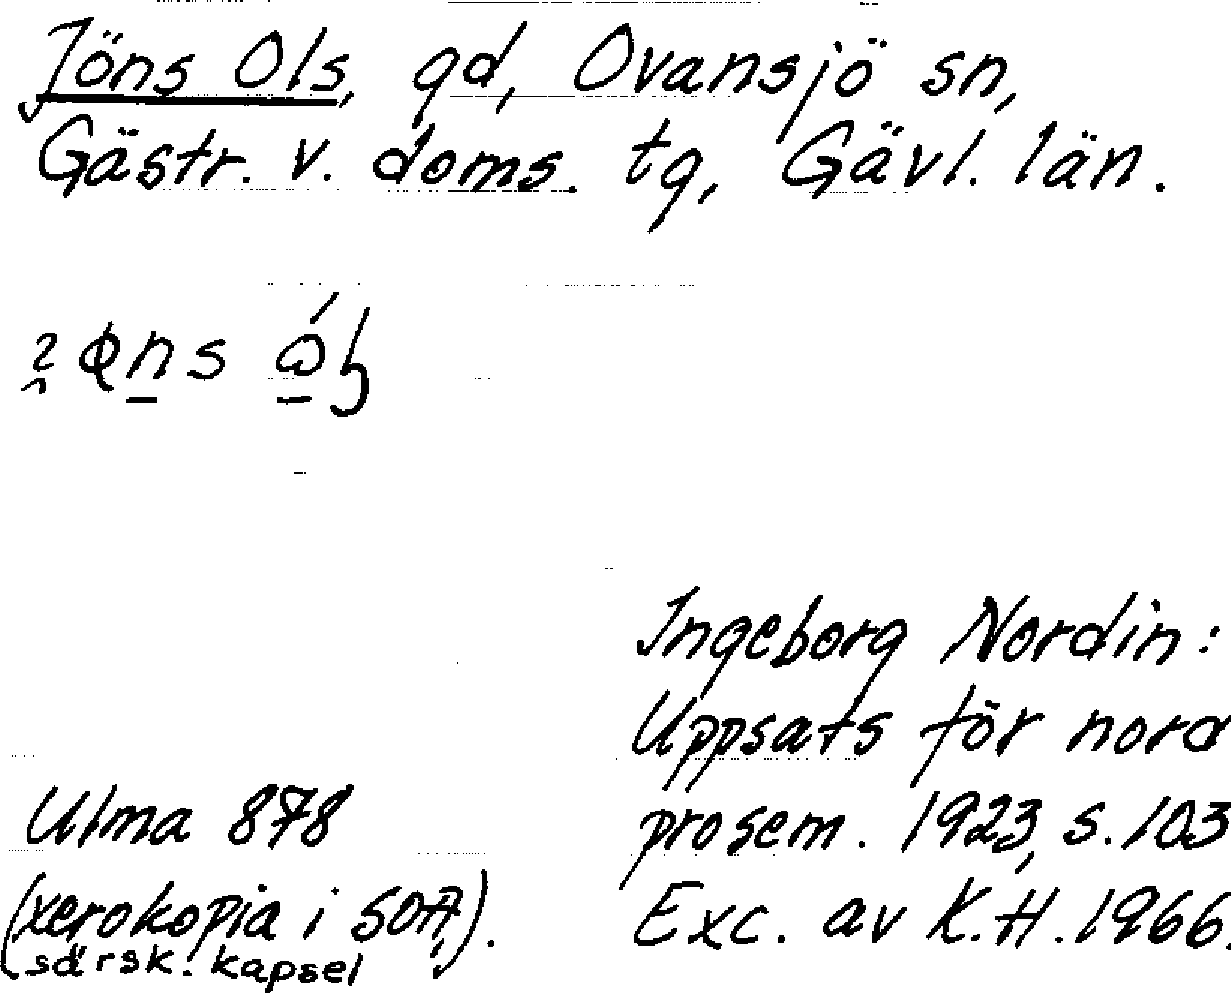 Jöns Ols, gd, Ovansjö sn,
Gästr. v. doms. tg, Gävl. län.
Ingeborg Nordin:
Uppsats för nord
prosem. 1923, s. 103
Exc. av K.H. 1966.
Ulma 878
(xerokopia i SOA,
särsk. kapsel).